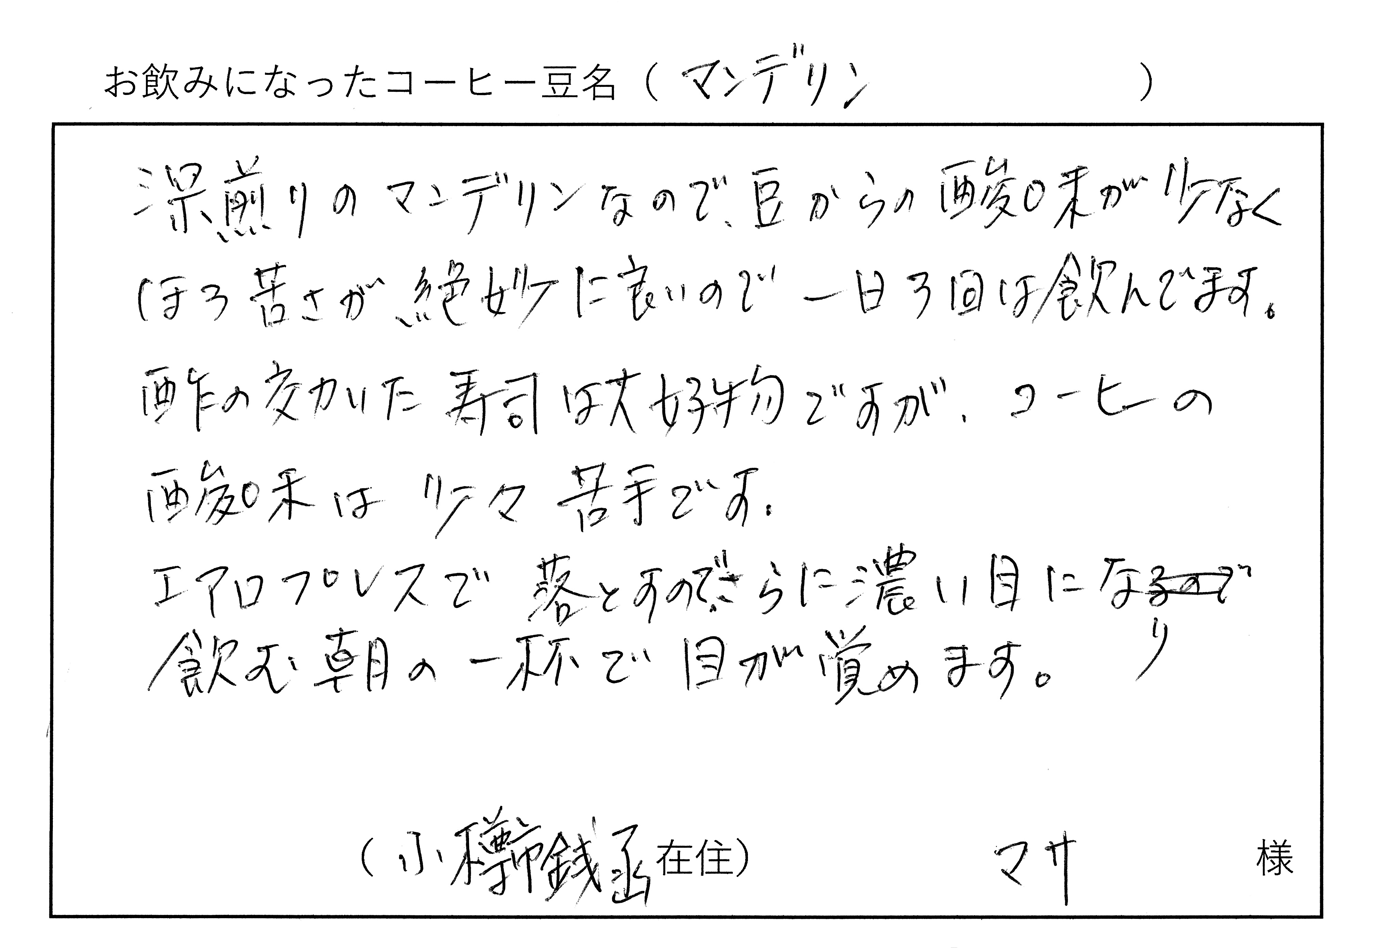 お飲みになったコーヒー豆名（マンデリン）
深煎りのマンデリンなので、豆からの酸味が少なく
ほろ苦さが絶妙に良いので一日3回は飲んでます。
酢の効いた寿司は大好物ですが、コーヒーの
酸味は少々苦手です。
エアロプレスで落とすので、さらに濃い目になり
飲む朝の一杯で目が覚めます。
（小樽市銭函在住） マサ 様